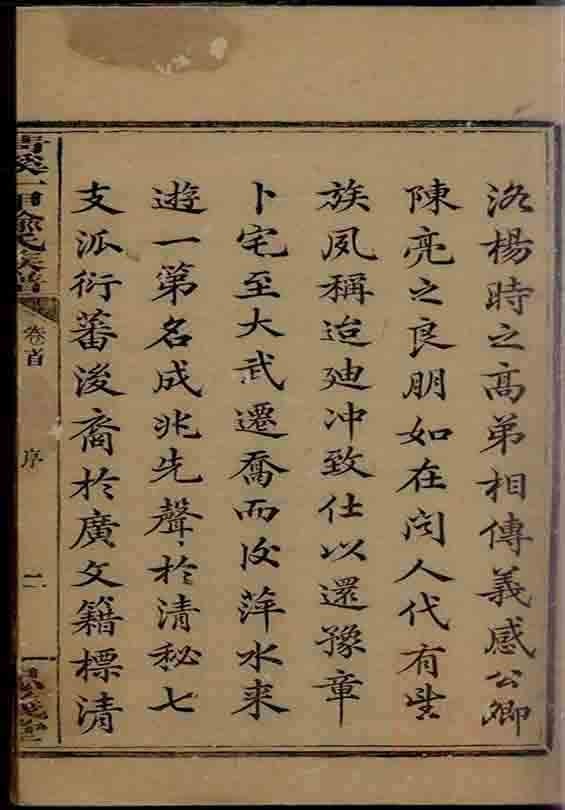 洛楊時之高弟相傳義感公卿
陳亮之良朋如在閩人代有望
族夙稱迨廸冲致仕以還豫章
卜宅至大武遷喬而後萍水来
遊一第名成兆先聲於清秘七
支派衍蕃後裔於廣文籍標清
喻氏族譜
卷首
序
二